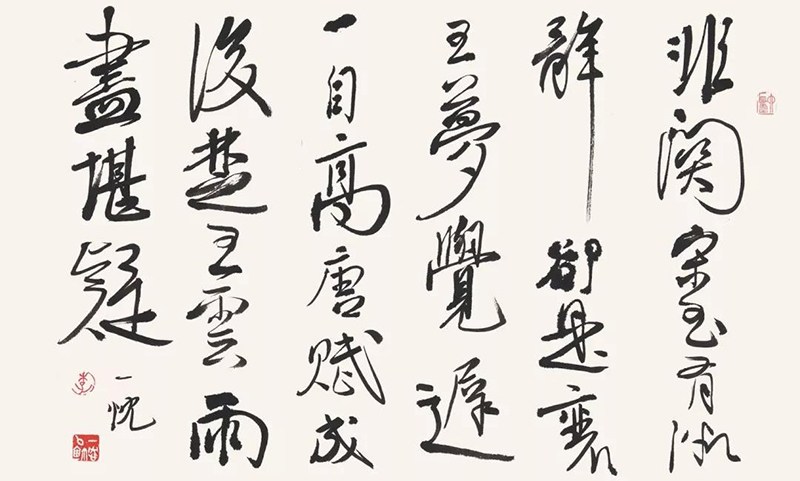 非關宋玉有微
辭卻是襄
王夢覺遲
一自高唐賦成
後楚王雲雨
盡堪疑
一忱
李